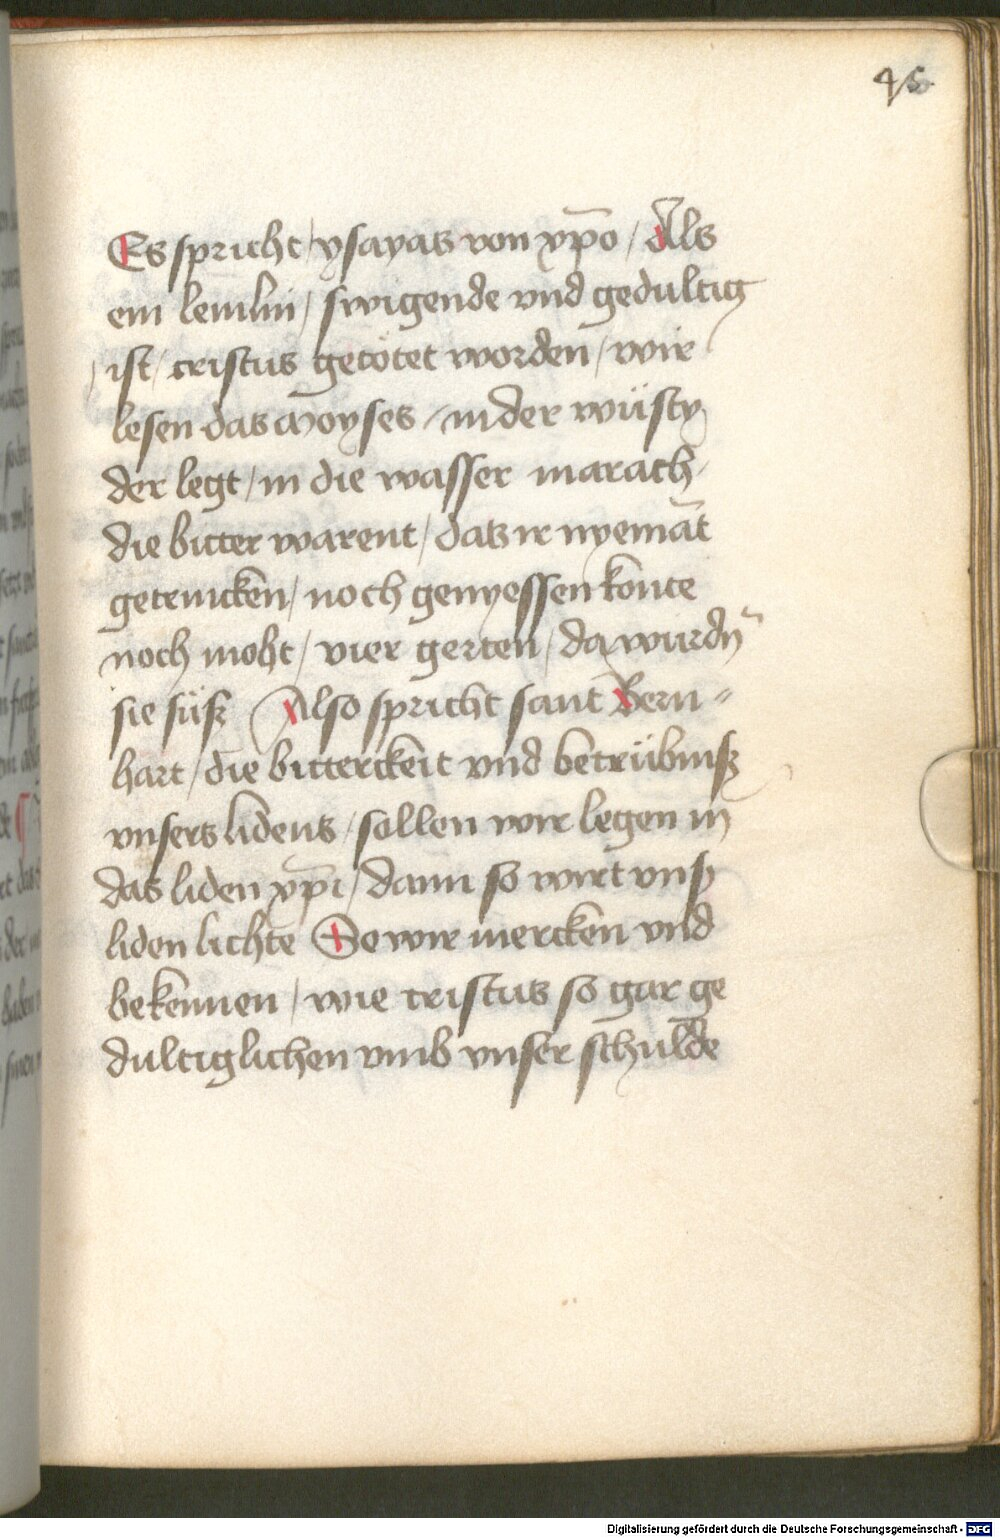 45
Es spricht / ysayas von xp̄o / Als
ein lemlin / swigende vnd gedultig
ist / cristus getötet worden / wir
lesen das Moyses / in der wüsty
der legt / in die wasser marath /
die bitter warent / das ir nyemāt
getrincken / noch genyessen konte
noch moht / vier gerten / da wurdn̄
sie süß Also spricht sant Bern=
hart / die bitterckeit vnd betrübniß
vnsers lidens / sollen wir legen in
das liden xp̄i / dann so wirt vnß
liden lichte So wir mercken vnd
bekennen / wie cristus so gar ge
dultiglichen vmb vnser schulde
Digitalisierung gefördert durch die Deutsche Forschungsgemeinschaft - DFG